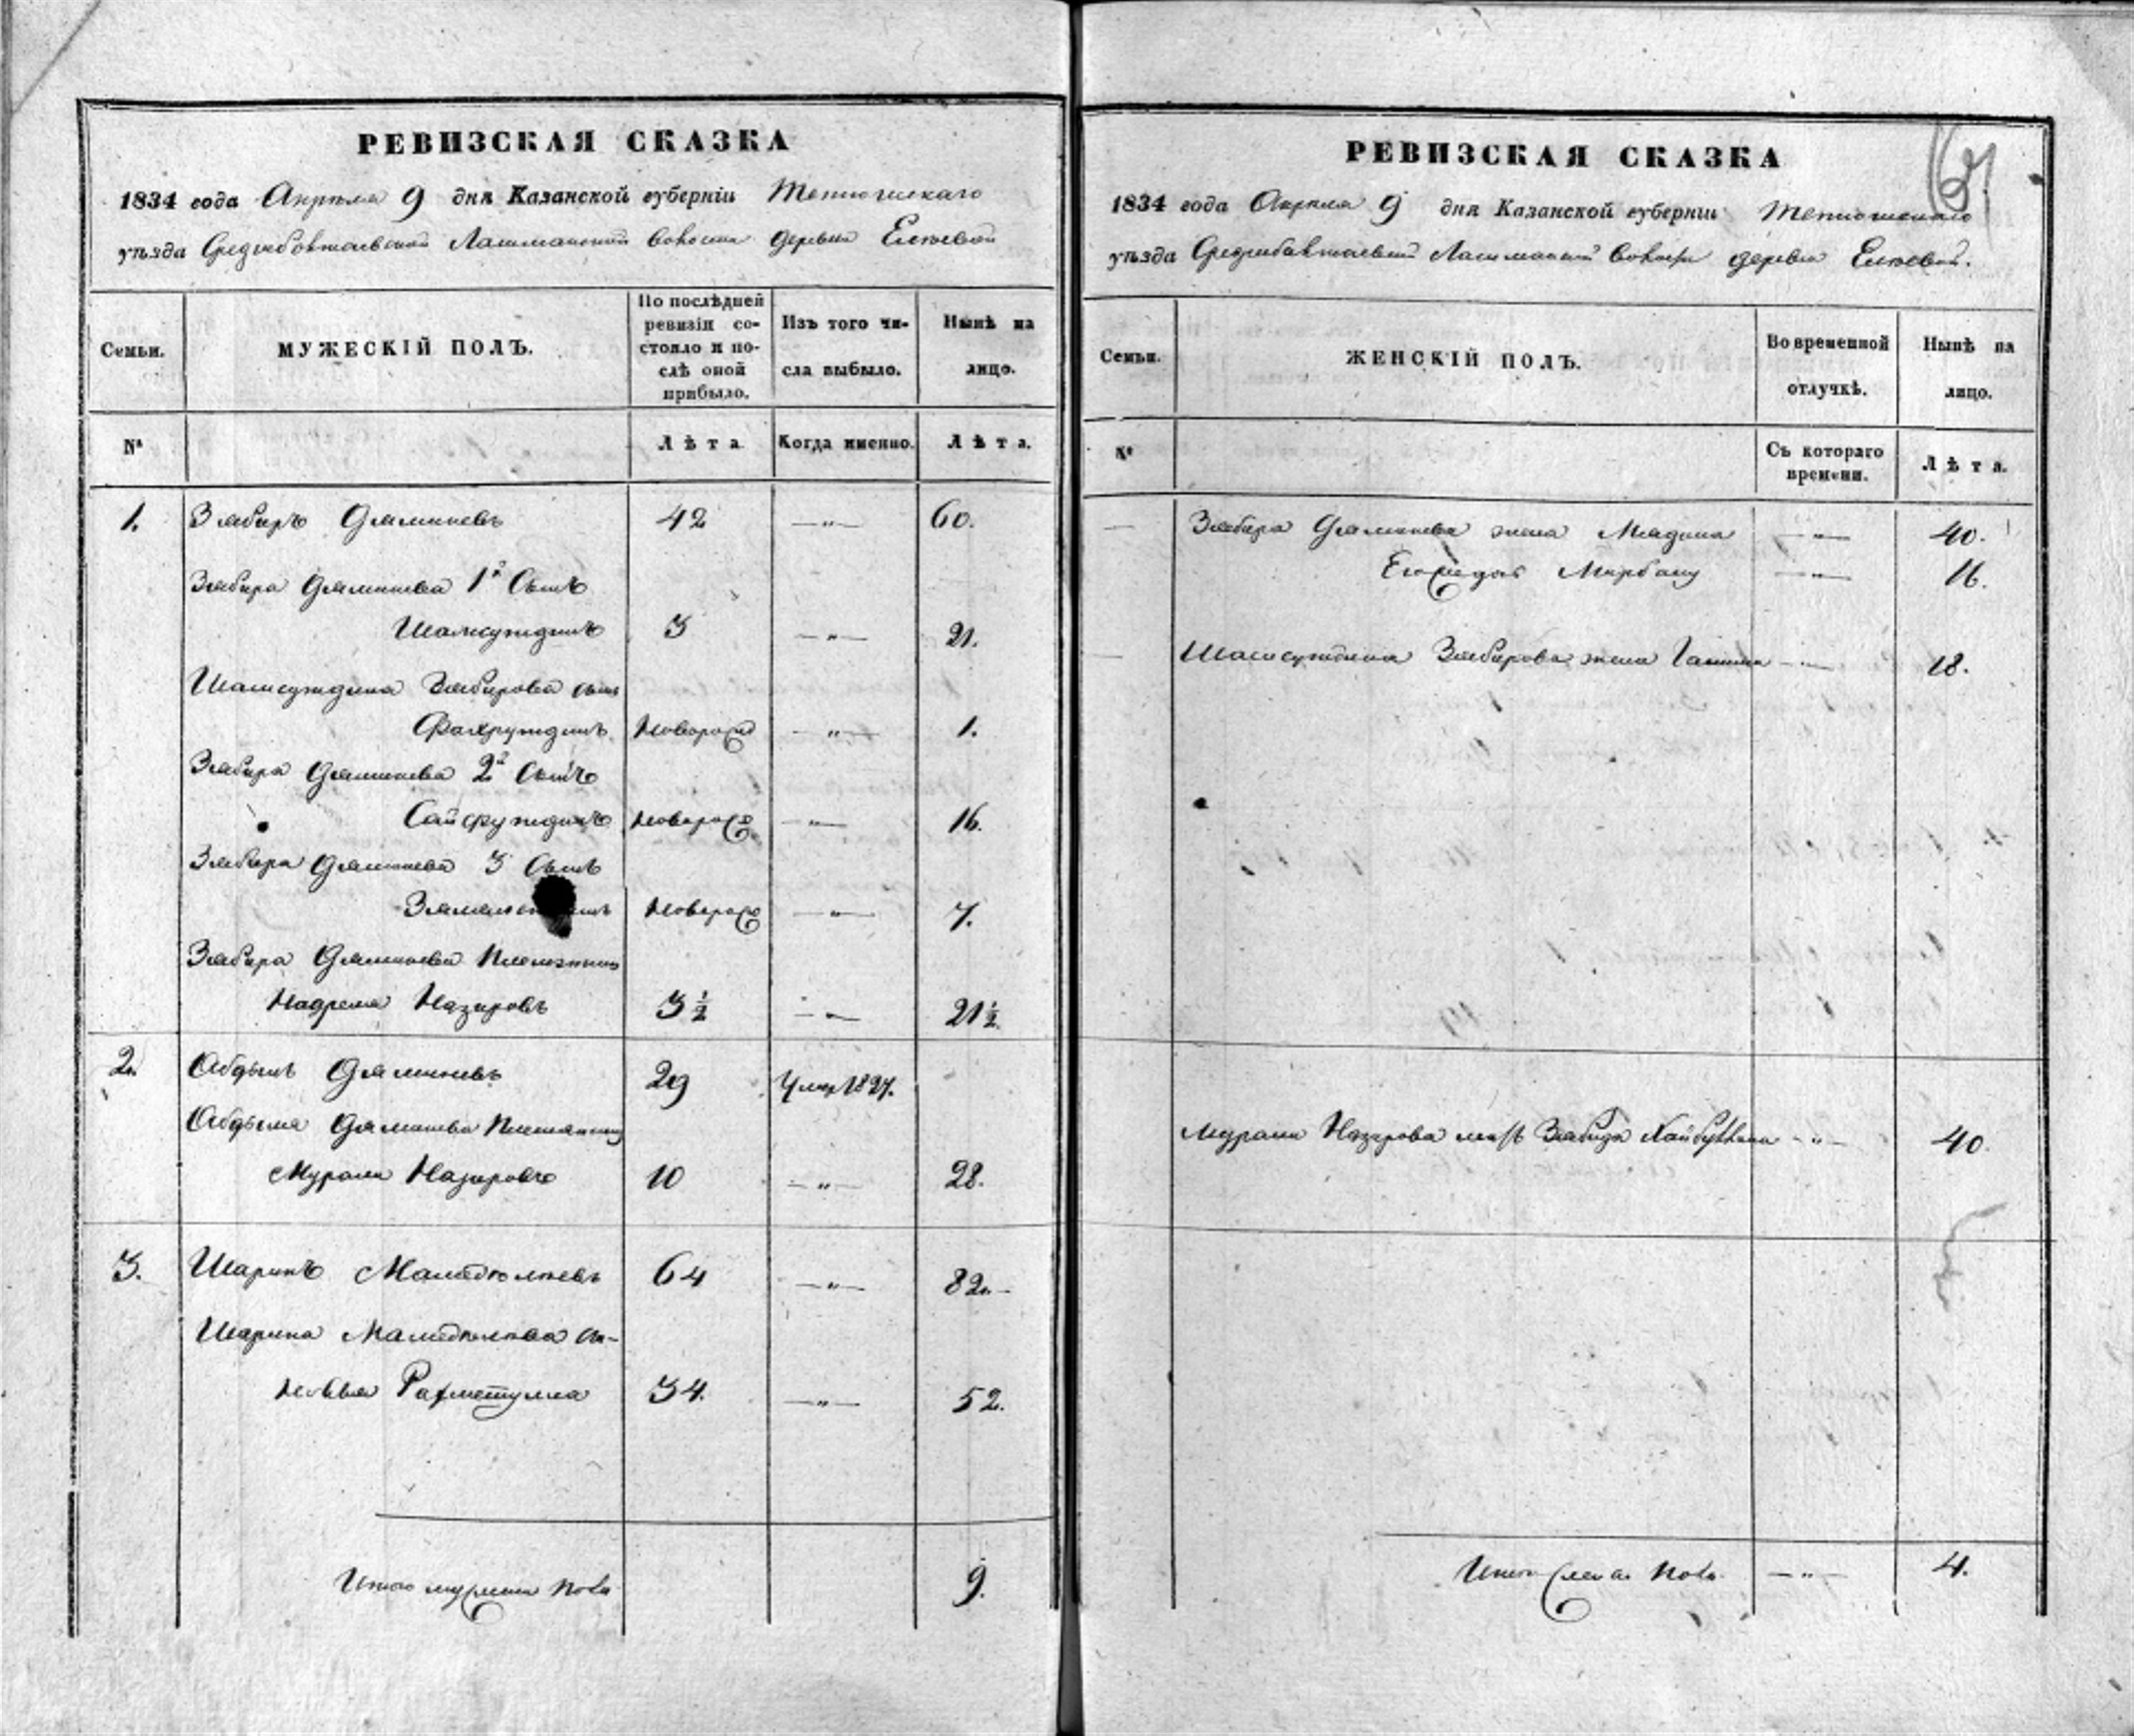 РЕВИЗСКАЯ СКАЗКА
1834 года Апреля 9 дня Казанской губерніи Тетюшскаго
уѣзда Среднебалтаевской Лашманской Волости деревни Елховой
Семьи.
МУЖЕСКІЙ ПОЛЪ.
По послѣдней
ревизіи со-
стояло и по-
слѣ оной
прибыло.
Изъ того чи-
сла выбыло.
Нынѣ на
лицо.
№
Лѣта
Когда именно.
Лѣта.
1. Зябиръ Дяминевъ 42 —"— 60.
Зябира Дяминева 1й Сынъ
Шамсутдинъ 3 —"— 21.
Шамсутдина Зябирова сынъ
Фахрутдинъ Новорожд —"— 1.
Зябира Дяминева 2й Сынъ
Сайфутдинъ Новорож —"— 16.
Зябира Дяминева 3 Сынъ
Новорож —"— 7.
Зябира Дяминева Племянникъ
Назаровъ 3 1/2 —"— 21 1/2.
2. Абдынъ Дяминевъ 29 Умер 1827.
Дяминева Племянникъ
Мурали Назаровъ 10 —"— 28.
3. Шарипъ 64 —"— 82.
Шарипа сы-
новья Рахметулла 34. —"— 52.
Итого мужеска пола 9.
РЕВИЗСКАЯ СКАЗКА
1834 года Апреля 9 дня Казанской губерніи Тетюшскаго
уѣзда Среднебалтаевской Лашманской Волости деревни Елховой.
Семьи.
ЖЕНСКІЙ ПОЛЪ.
Во временной
отлучкѣ.
Нынѣ на
лицо.
№
Съ котораго
времени.
Лѣта.
— Зябира Дяминева жена Мядина —"— 40.
Его дочь Мирбану —"— 16.
— Шамсутдина Зябирова жена —"— 18.
Мурали Назарова мать Зябида —"— 40.
Итого женска пола —"— 4.